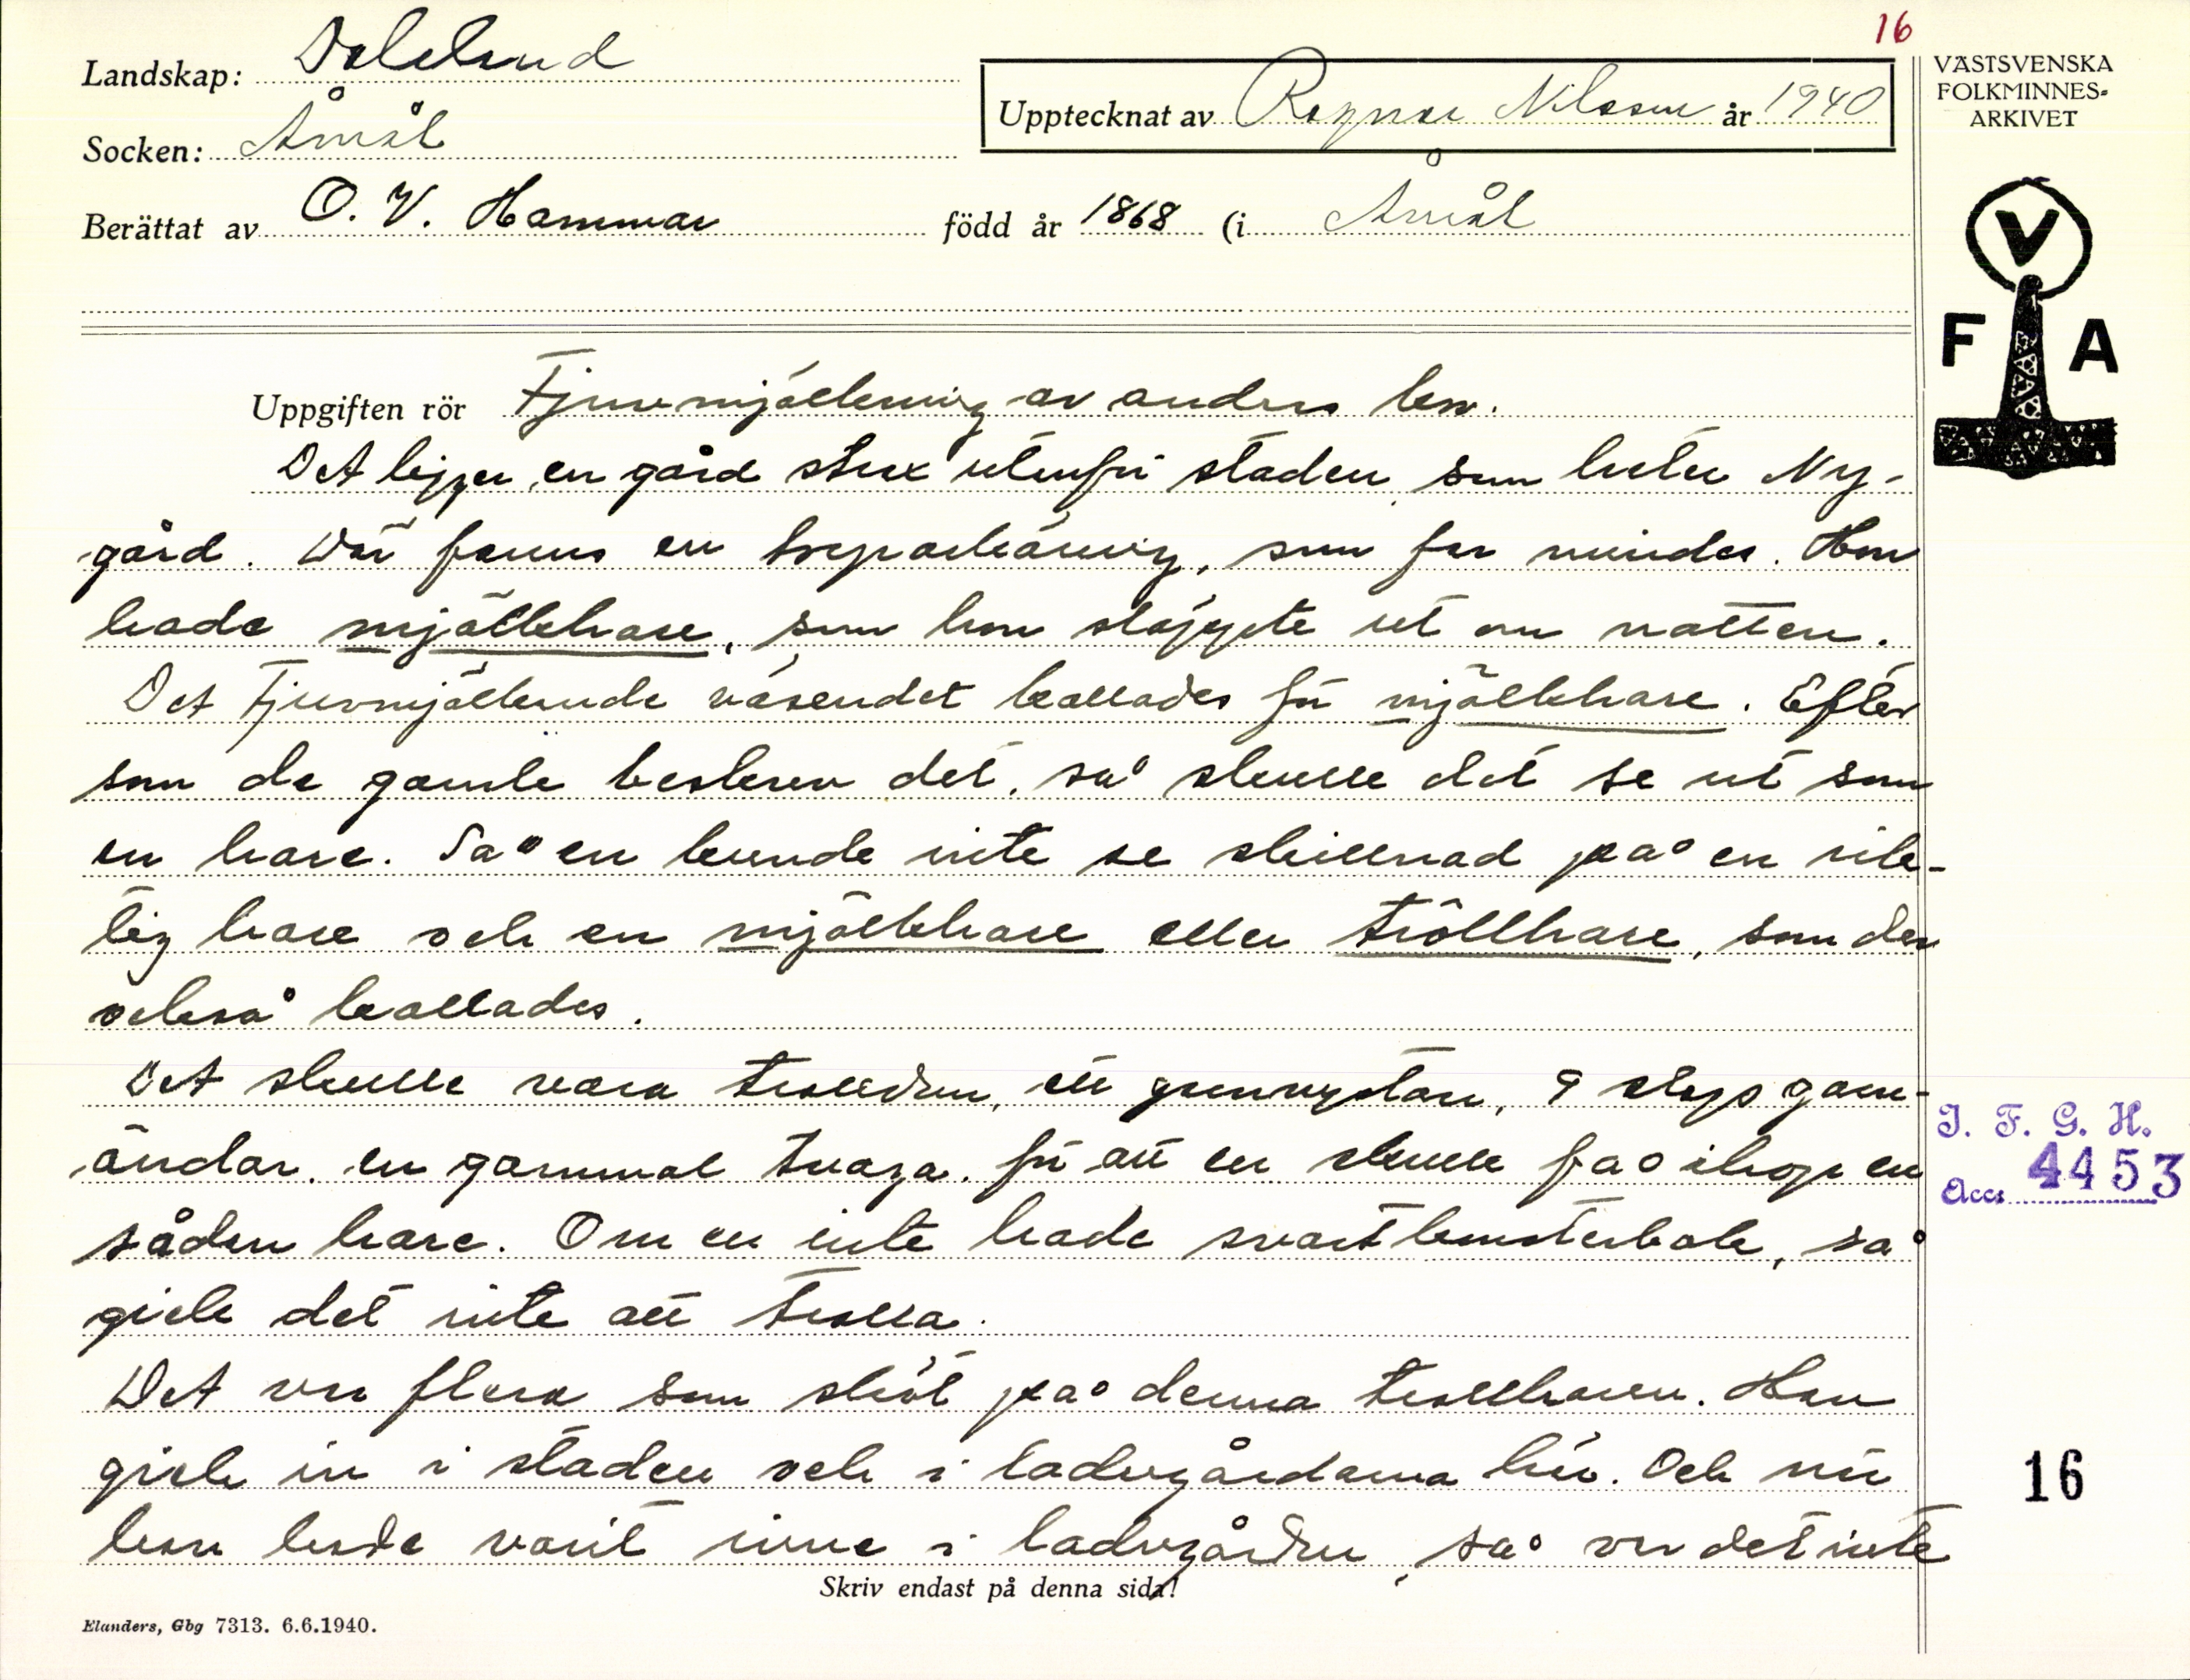 16
Landskap: Dalsland
Upptecknat av Ragnar Nilsson år 1940
VÄSTSVENSKA
FOLKMINNES-
ARKIVET
Socken: Åmål
Berättat av O. V. Hammar född år 1868 (i Åmål
V
F A
Uppgiften rör Tjuvmjölkning av andras kor.
Det ligger en gård strax utanför staden, som heter Ny-
gård. Där fanns en torparkäring, som for mindes. Hon
hade mjölkhare, som hon släppte ut om natten.
Det tjuvmjölkande väsendet kallades för mjölkhare. Efter
som de gamle beskrev det, så skulle det se ut som
en hare. Sa en kunde inte se skillnad på en rik-
tig hare och en mjölkhare eller tröllhare, som den
också kallades.
Det skulle vara trolldon, ett 9 slags garn-
ändar, en gammal tvaga för att en skulle få ihop en
sådan hare. Om en inte hade svartkonsterbok, så
gick det inte att trolla.
Det var flera som sköt på denna trollharen. Han
gick in i staden och i ladugårdarna här. Och när
han hade varit inne i ladugården, så var det inte
Skriv endast på denna sida!
Elanders, Gbg 7313. 6.6.1940.
I. F. G. H.
Acc. 4453
16